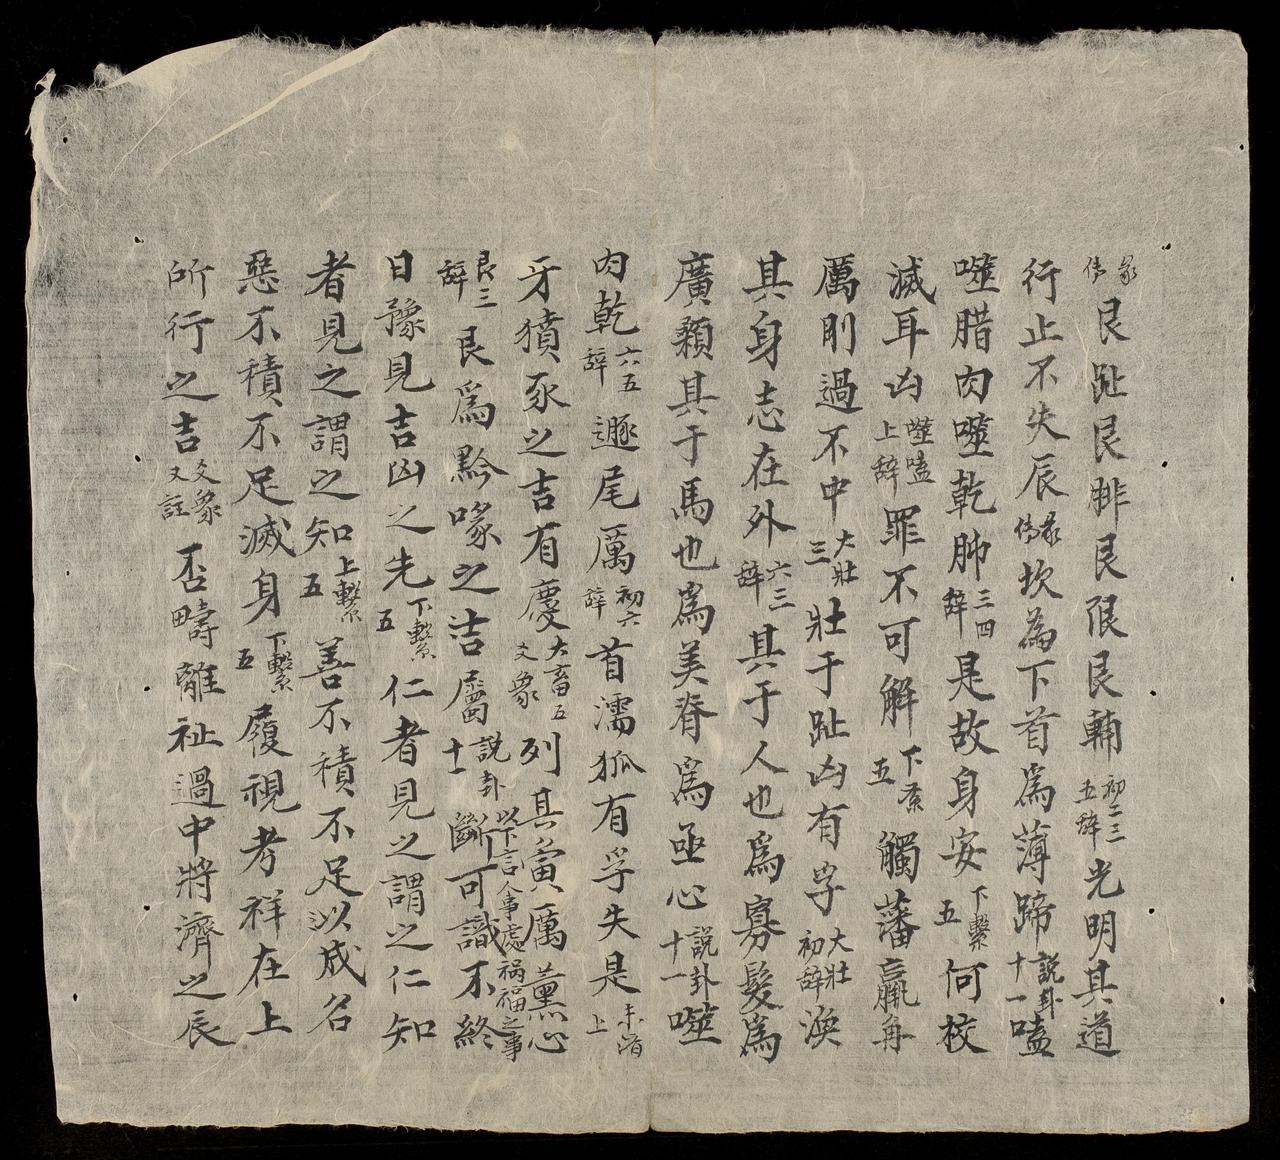 彖傳艮趾艮腓艮限艮輔初二三五辞光明其道
行止不失辰彖傳坎為下首爲薄蹄説卦十一嗑
噬腊肉噬乾胏三四辞是故身安下繫五何校
滅耳凶噬嗑上辞罪不可解下系五觸藩羸角
厲刖過不中大壯三壯于趾凶有孚大壯初辞渙
其身志在外六三辞其于人也爲寡髮爲
廣顙其于馬也爲美脊爲亟心説卦十一噬
肉乾六五辞遯尾厲初六辞首濡狐有孚失是未済上
牙豶豕之吉有慶大畜五爻象列其夤厲薰心
艮三辞艮爲黔喙之吉屬説卦十一斷可識不終以下言人事處禍福之事
日豫見吉凶之先下繫五仁者見之謂之仁知
者見之謂之知上繫五善不積不足以成名
惡不積不足滅身下繫五履視考祥在上
所行之吉爻象又註否疇離祉過中將濟之辰